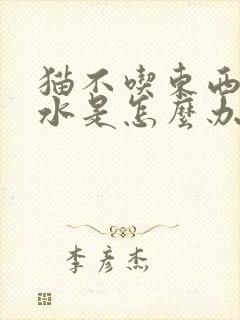 猫不喫東西
水是怎麼办
李彦杰